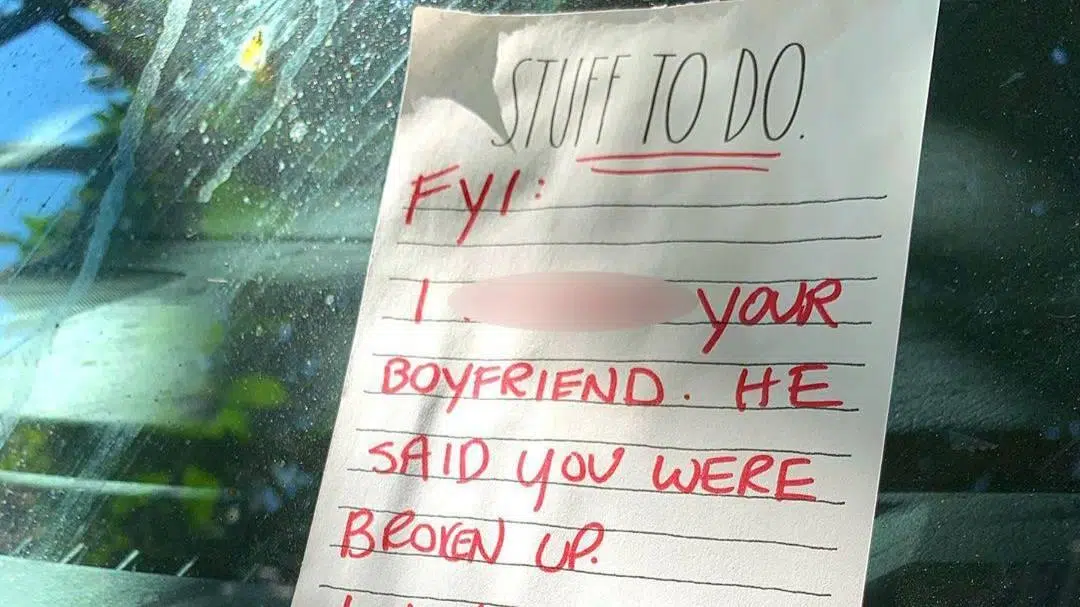 STUFF TO DO.
FYI:
I YOUR
BOYFRIEND. HE
SAID YOU WERE
BROKEN UP.